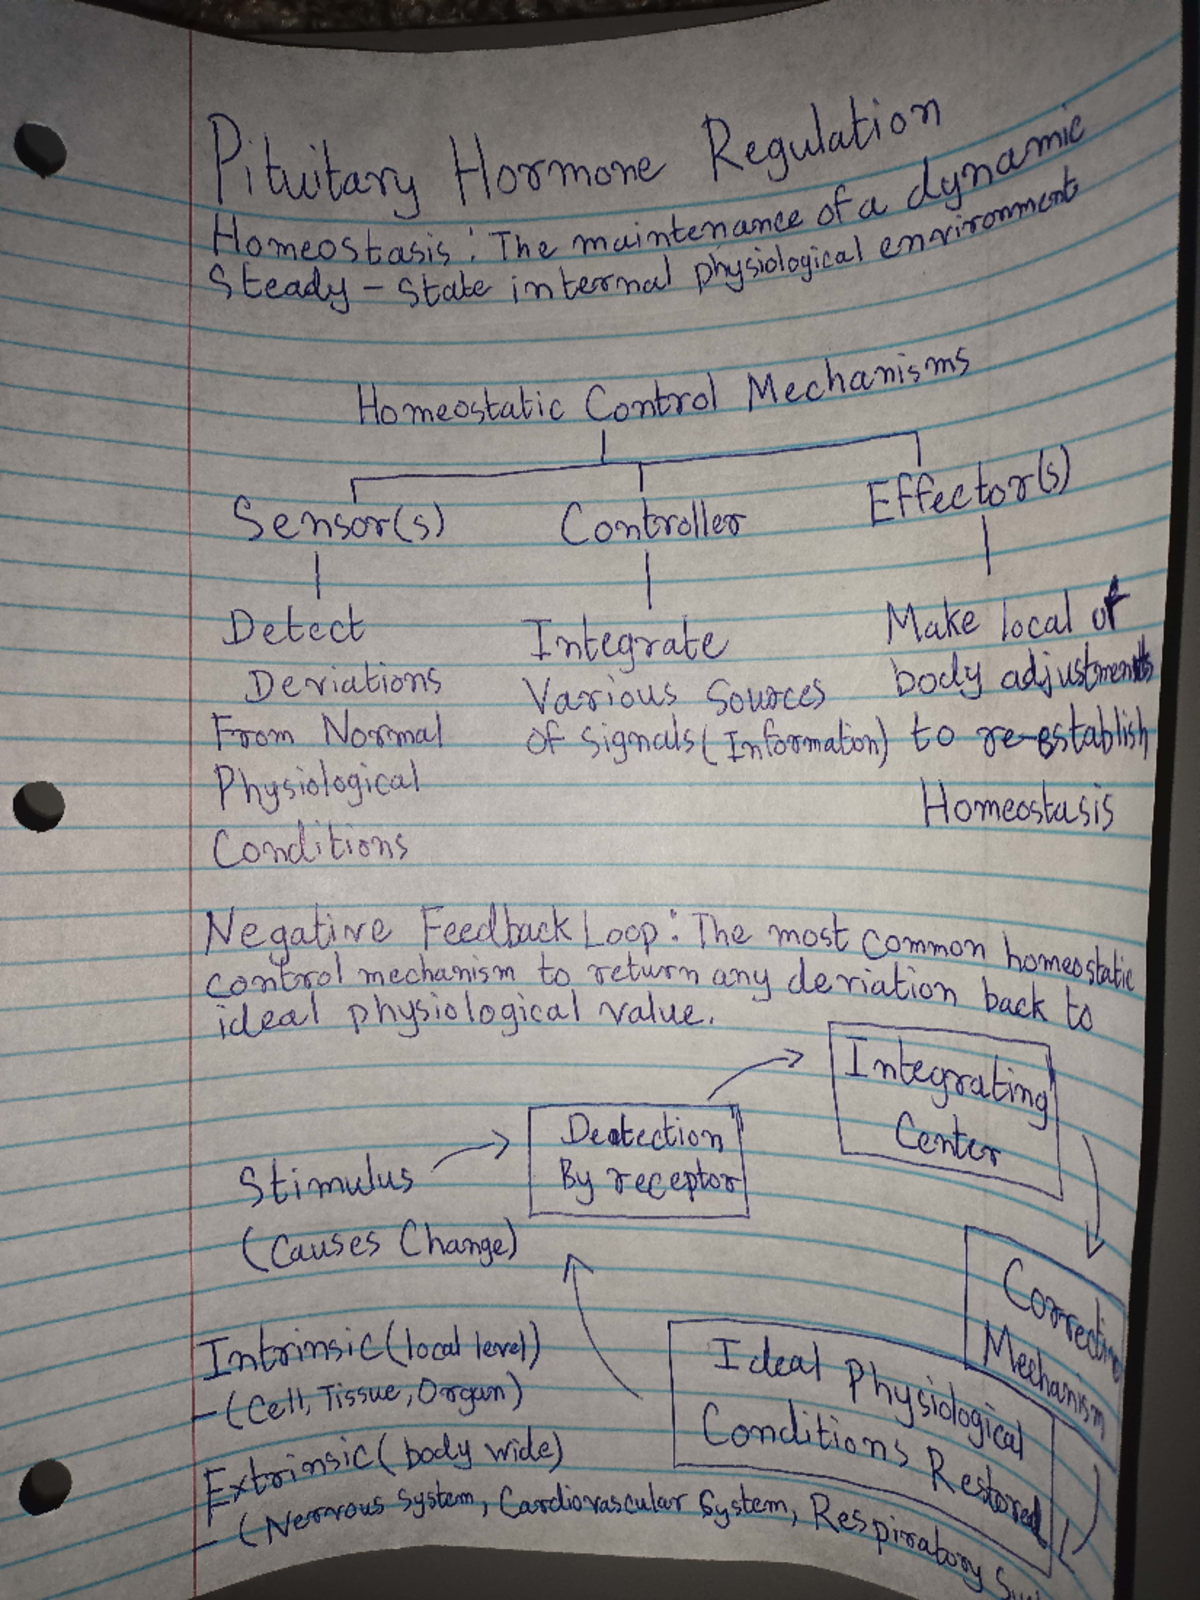 Pituitary Hormone Regulation
Homeostasis: The maintenance of a dynamic
Steady-State internal physiological environment
Homeostatic Control Mechanisms
Sensor(s)
Controller
Effector(s)
Detect
Deviations
From Normal
Physiological
Conditions
Integrate
Various Sources
of signals (Information)
Make local of
body adjustments
to re-establish
Homeostasis
Negative Feedback Loop: The most common homeostatic
control mechanism to return any deviation back to
ideal physiological value.
Stimulus
(Causes Change)
Detection
By receptor
Integrating
Center
Corrective
Mechanism
Ideal Physiological
Conditions Restored
Intrinsic (local level)
- (Cell, Tissue, Organ)
Extrinsic (body wide)
- (Nervous System, Cardiovascular System, Respiratory